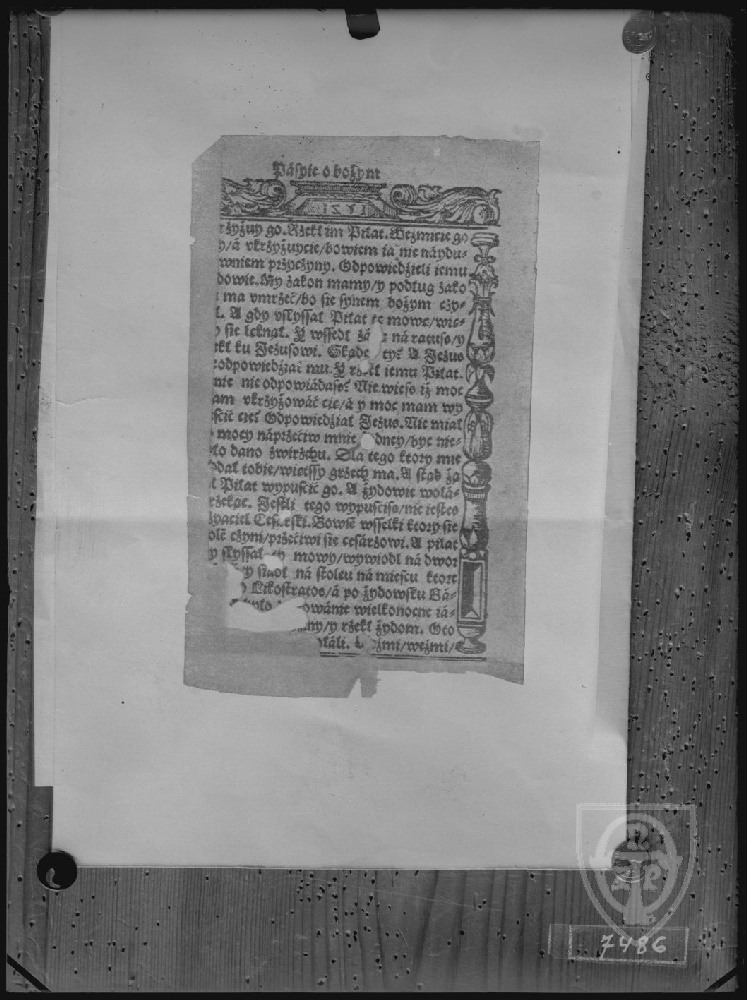 Páſyie o bożym
LVZI
rzyżuy go. Rzekł im Piłat. Weźmicie go
y/á vkrzyżuycie/bowiem ia nie náydu-
wniem przyczyny. Odpowiedzieli iemu
dowie. My zakon mamy/y podług zako
ma vmrzeć/bo ſie ſynem bożym czy-
ł. A gdy vſłyſſał Piłat te mowę/wię-
ſie leknął. Y wſſedł zá ná ratuſz/y
rzekł ku Jezuſowi. Skąde tyś A Jezus
odpowiedział mu. Y rzekł iemu Piłat.
nie nie odpowiádaſz? Nie wieſz iż moc
am vkrzyżowáć cie/á y moc mam wy
ſcić cię? Odpowiedział Jezus. Nie miał
mocy náprzeciw mnie dney/być nie-
ło dano zwirzchu. Dla tego ktory mie
dał tobie/więtſſy grzech ma. A ſtąd żá
ł Piłat wypuſcić go. A żydowie wołá-
rzekąc. Jeſtli tego wypuſciſz/nie ieſteś
yaciel Ceſ rſki. Bowiē wſſelki ktory ſie
olē czyni/przeciwi ſie ceſárzowi. A piłat
y ſłyſſał mowy/wywiodł ná dwor
y ſiadł ná ſtolcu ná mieſcu ktore
Likoſtratos/á po żydowſku Gá-
owánie wielkonocne iá-
ny/y rzekł żydom. Oto
łáli. zmi/weźmi/
7486